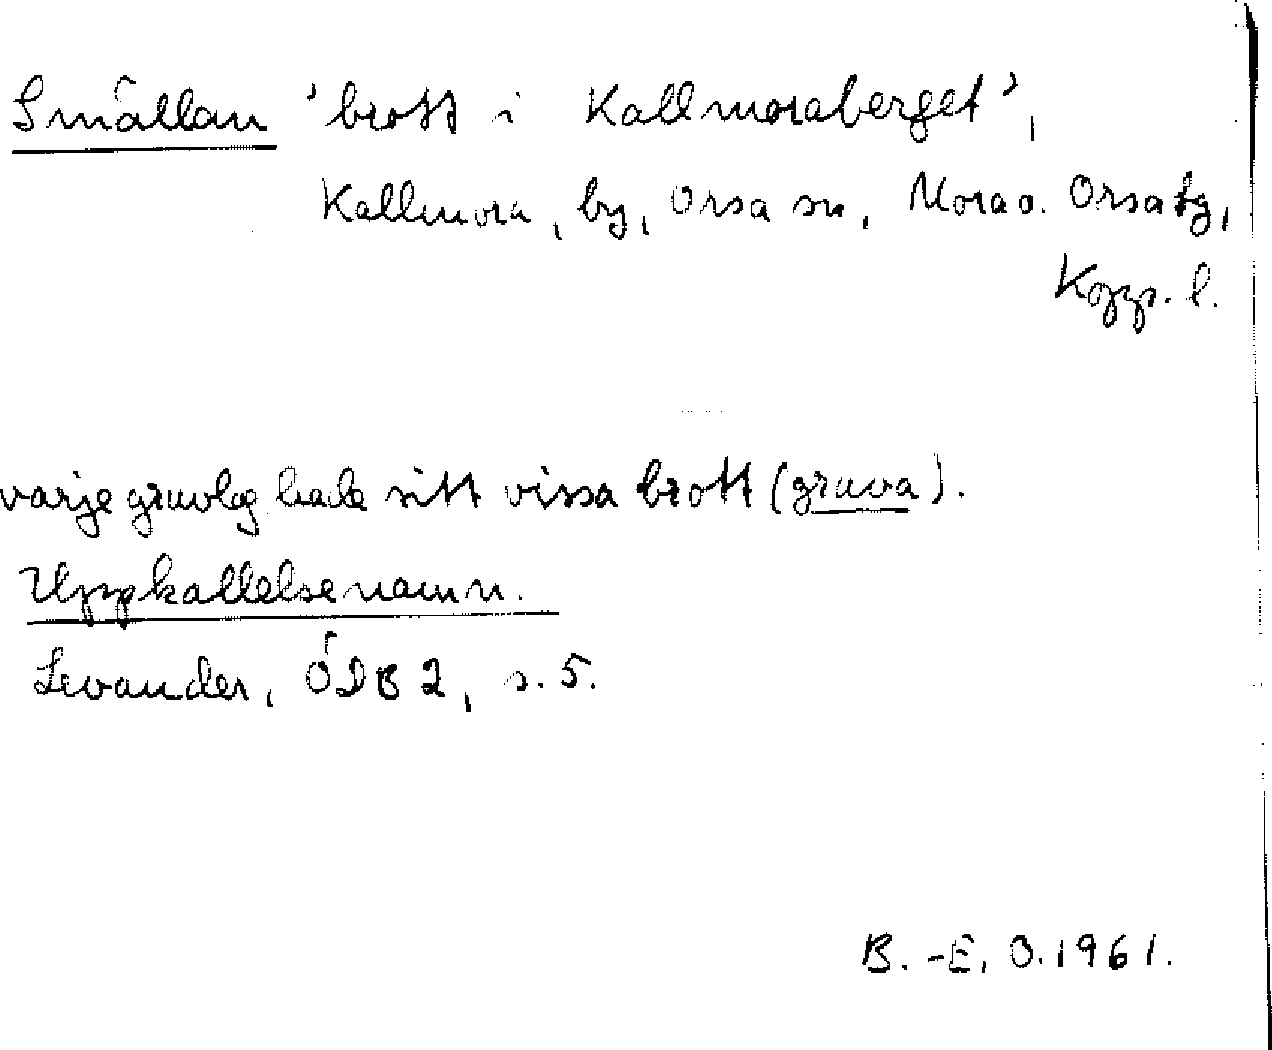 Smällan 'brott i Kallmoraberget',
Kallmora, by, Orsa sn, Mora o. Orsa tg,
Kopp. l.
varje gruvlag hade sitt vissa brott (gruva).
Uppkallelsenamn.
Levander, ÖDB 2, s. 5.
B.-E. O. 1961.